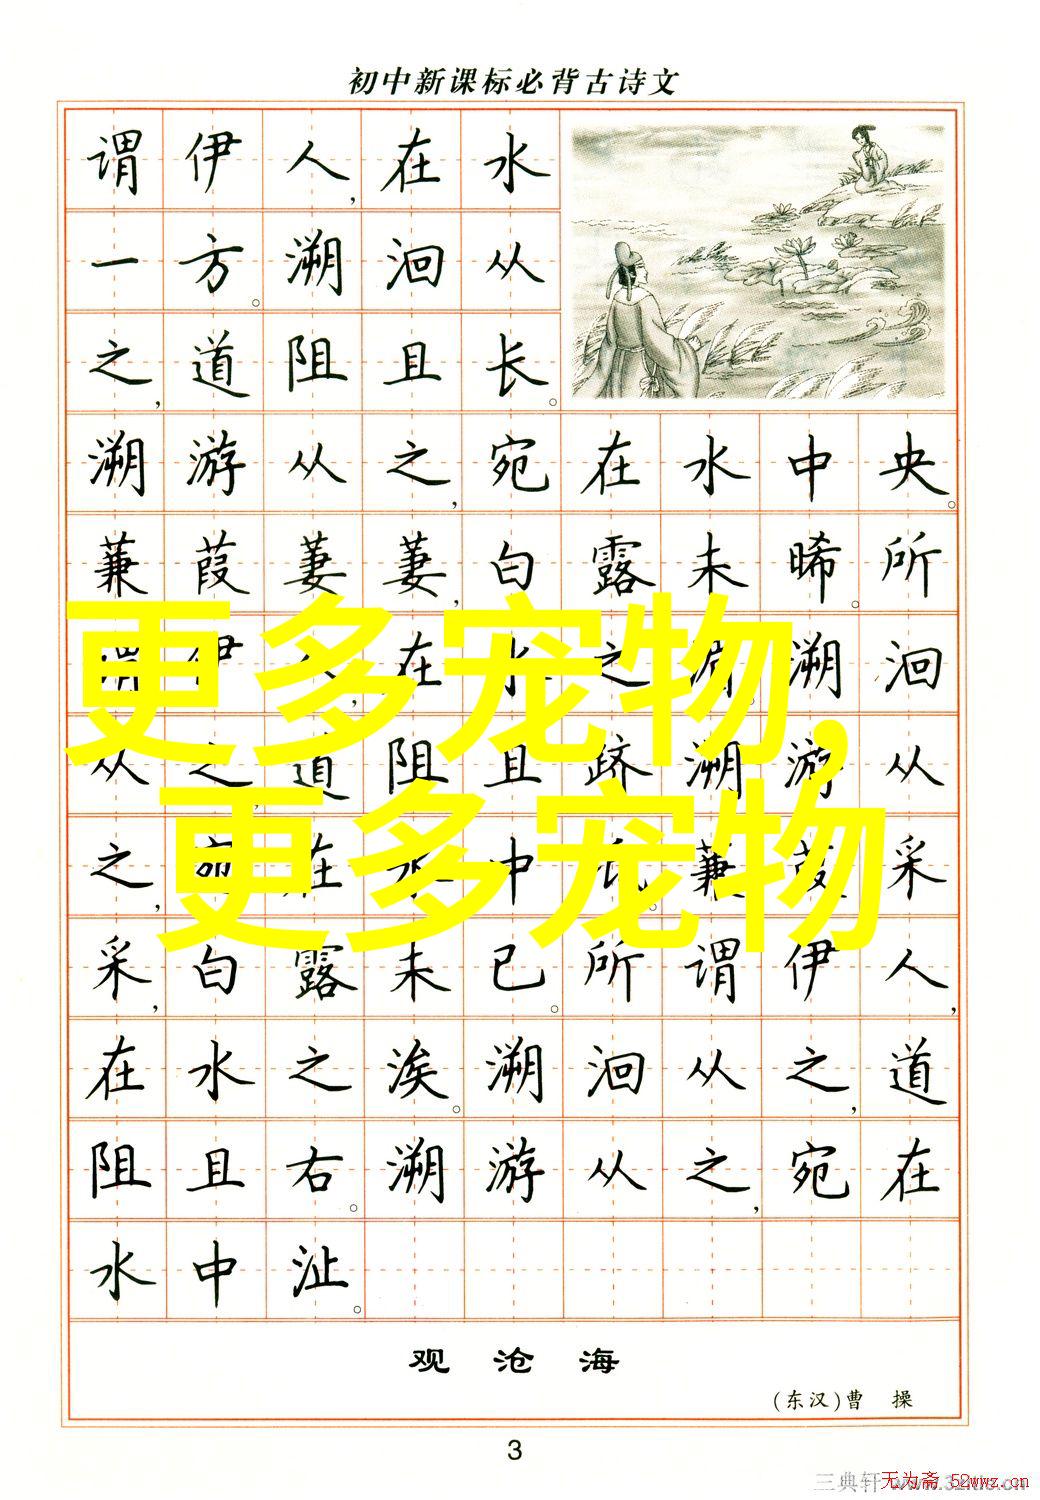 初中新课标必背古诗文
谓伊人,在水
一方。溯洄从
之,道阻且长。
溯游从之,宛在水中央。
蒹葭萋萋,白露未晞。所
谓伊人,在水之湄。溯洄
从之,道阻且跻。溯游从
之,宛在水中坻。蒹葭采
采,白露未已。所谓伊人,
在水之涘。溯洄从之,道
阻且右。溯游从之,宛在
水中沚。
更多宠物,
更多宠物
观沧海
(东汉)曹 操
3
三典轩
无为斋 52wwz.cn